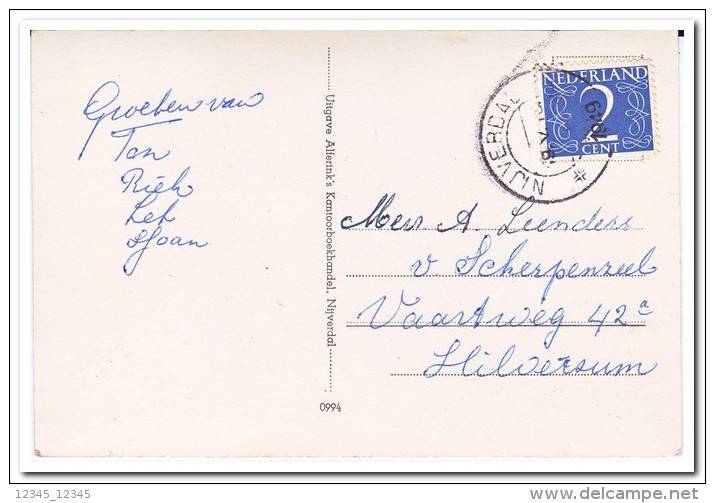 Groeten van
Ton
Riek
Lex
Joan
Uitgave Alferink's Kantoorboekhandel, Nijverdal
0994
NIJVERDAL
NEDERLAND
2
CENT
Mevr A. Leenders
v. Scherpenzeel
Vaartweg 42a
Hilversum
12345_12345
delcampe.net